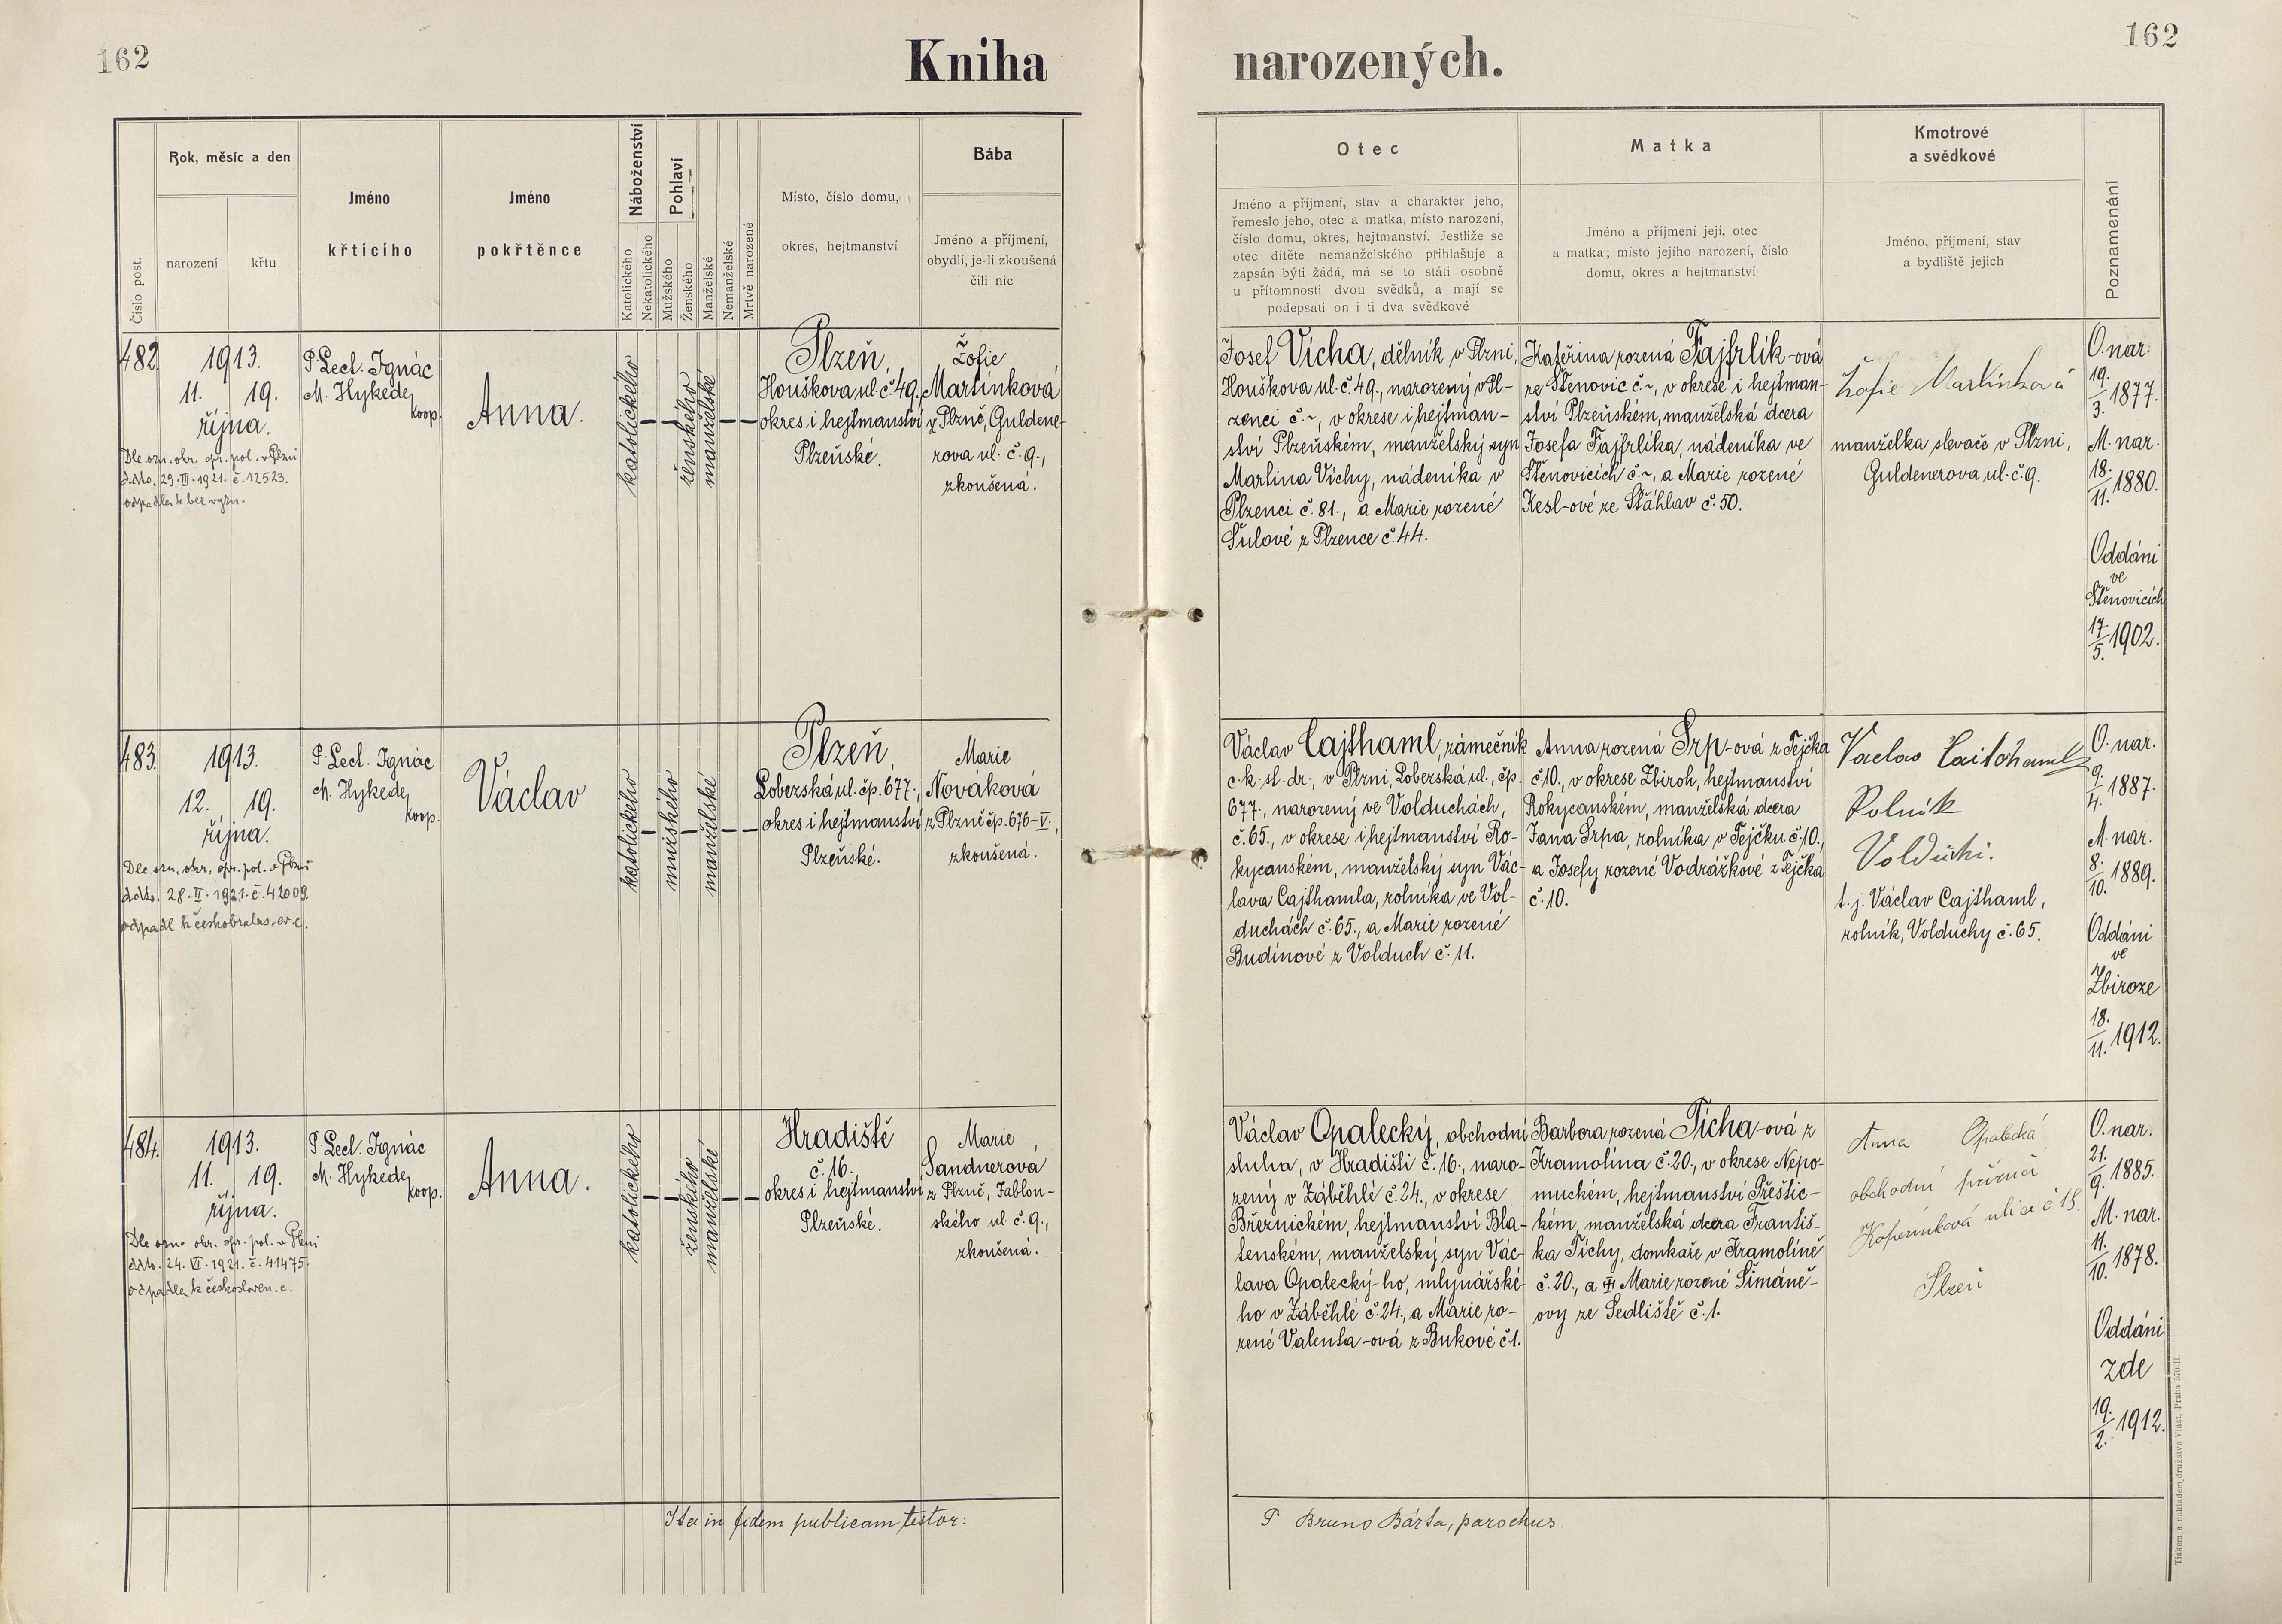 162
Kniha
narozených.
162
Číslo post.
Rok, měsíc a den
narození
křtu
Jméno
křtícího
Jméno
pokřtěnce
Náboženství
Katolického
Nekatolického
Pohlaví
Mužského
Ženského
Manželské
Nemanželské
Mrtvě narozené
Místo, číslo domu,
okres, hejtmanství
Bába
Jméno a příjmení,
obydlí, je-li zkoušená
čili nic
Otec
Jméno a příjmení, stav a charakter jeho,
řemeslo jeho, otec a matka, místo narození,
číslo domu, okres, hejtmanství. Jestliže se
otec dítěte nemanželského přihlašuje a
zapsán býti žádá, má se to státi osobně
u přítomnosti dvou svědků, a mají se
podepsati on i ti dva svědkové
Matka
Jméno a příjmení její, otec
a matka; místo jejího narození, číslo
domu, okres a hejtmanství
Kmotrové
a svědkové
Jméno, příjmení, stav
a bydliště jejich
Poznamenání
482.
1913.
11. 19.
října.
Dle ozn. okr. spr. pol. v Plzni
ddto. 29.III.1921. č. 12523.
odpadla k bez vyzn.
P. Lect. Ignác
M. Hykede,
koop.
Anna.
katolického
ženského
manželské
Plzeň,
Houškova ul. č. 49.,
okres i hejtmanství
Plzeňské.
Žofie
Martínková
z Plzně, Guldene-
rova ul. č. 9.,
zkoušená.
Josef Vícha, dělník v Plzni,
Houškova ul. č. 49., narozený v Pl-
zenci č. ~, v okrese i hejtman-
ství Plzeňském, manželský syn
Martina Víchy, nádeníka v
Plzenci č. 81., a Marie rozené
Šulové z Plzence č. 44.
Kateřina rozená Fajfrlík-ová
ze Štěnovic č. ~, v okrese i hejtman-
ství Plzeňském, manželská dcera
Josefa Fajfrlíka, nádeníka ve
Štěnovicích č. ~, a Marie rozené
Kesl-ové ze Šťáhlav č. 50.
Žofie Martínková
manželka slevače v Plzni,
Guldenerova ul. č. 9.
O. nar.
19./3. 1877.
M. nar.
18./11. 1880.
Oddáni
ve
Štěnovicích
17./5. 1902.
483.
1913.
12. 19.
října.
Dle ozn. okr. spr. pol. v Plzni
ddto. 28.II.1921. č. 42009.
odpadl k českobratrs. ev. c.
P. Lect. Ignác
M. Hykede,
koop.
Václav
katolického
mužského
manželské
Plzeň,
Lobezská ul. čp. 677.,
okres i hejtmanství
Plzeňské.
Marie
Nováková
z Plzně čp. 676-V.,
zkoušená.
Václav Cajthaml, zámečník
c. k. st. dr., v Plzni, Lobezská ul., čp.
677., narozený ve Volduchách,
č. 65., v okrese i hejtmanství Ro-
kycanském, manželský syn Vác-
lava Cajthamla, rolníka ve Vol-
duchách č. 65., a Marie rozené
Budínové z Volduch č. 11.
Anna rozená Srp-ová z Tejčka
č. 10., v okrese Zbiroh, hejtmanství
Rokycanském, manželská dcera
Jana Srpa, rolníka v Tejčku č. 10.,
a Josefy rozené Vodrážkové z Tejčka
č. 10.
Vaclav Caitchaml
Rolník
Volduchi.
t. j. Václav Cajthaml,
rolník, Volduchy č. 65.
O. nar.
9./4. 1887.
M. nar.
8./10. 1889.
Oddáni
ve
Zbiroze
18./11. 1912.
484.
1913.
11. 19.
října.
Dle ozn. okr. spr. pol. v Plzni
ddto. 24.VI.1921. č. 41475.
odpadla k českosloven. c.
P. Lect. Ignác
M. Hykede,
koop.
Anna.
katolického
ženského
manželské
Hradiště
č. 16.,
okres i hejtmanství
Plzeňské.
Marie
Sandnerová
z Plzně, Jablon-
ského ul. č. 9.,
zkoušená.
Václav Opalecký, obchodní
sluha, v Hradišti č. 16., naro-
zený v Záběhlé č. 24., v okrese
Březnickém, hejtmanství Bla-
tenském, manželský syn Vác-
lava Opalecký-ho, mlynářské-
ho v Záběhlé č. 24., a Marie ro-
zené Valenta-ová z Bukové č. 1.
Barbora rozená Tichá-ová z
Kramolína č. 20., v okrese Nepo-
muckém, hejtmanství Přeštic-
kém, manželská dcera Františ-
ka Tichý, domkaře v Kramolíně
č. 20., a Marie rozené Šimáně-
ovy ze Sedliště č. 1.
Anna Opalecká
obchodní příručí
Koperníková ulice č 18.
Plzeň
O. nar.
21./9. 1885.
M. nar.
11./10. 1878.
Oddáni
zde
19./2. 1912.
Ita in fidem publicam testor:
P Bruno Bárta, parochus.
Tiskem a nákladem družstva Vlast, Praha 570-II.